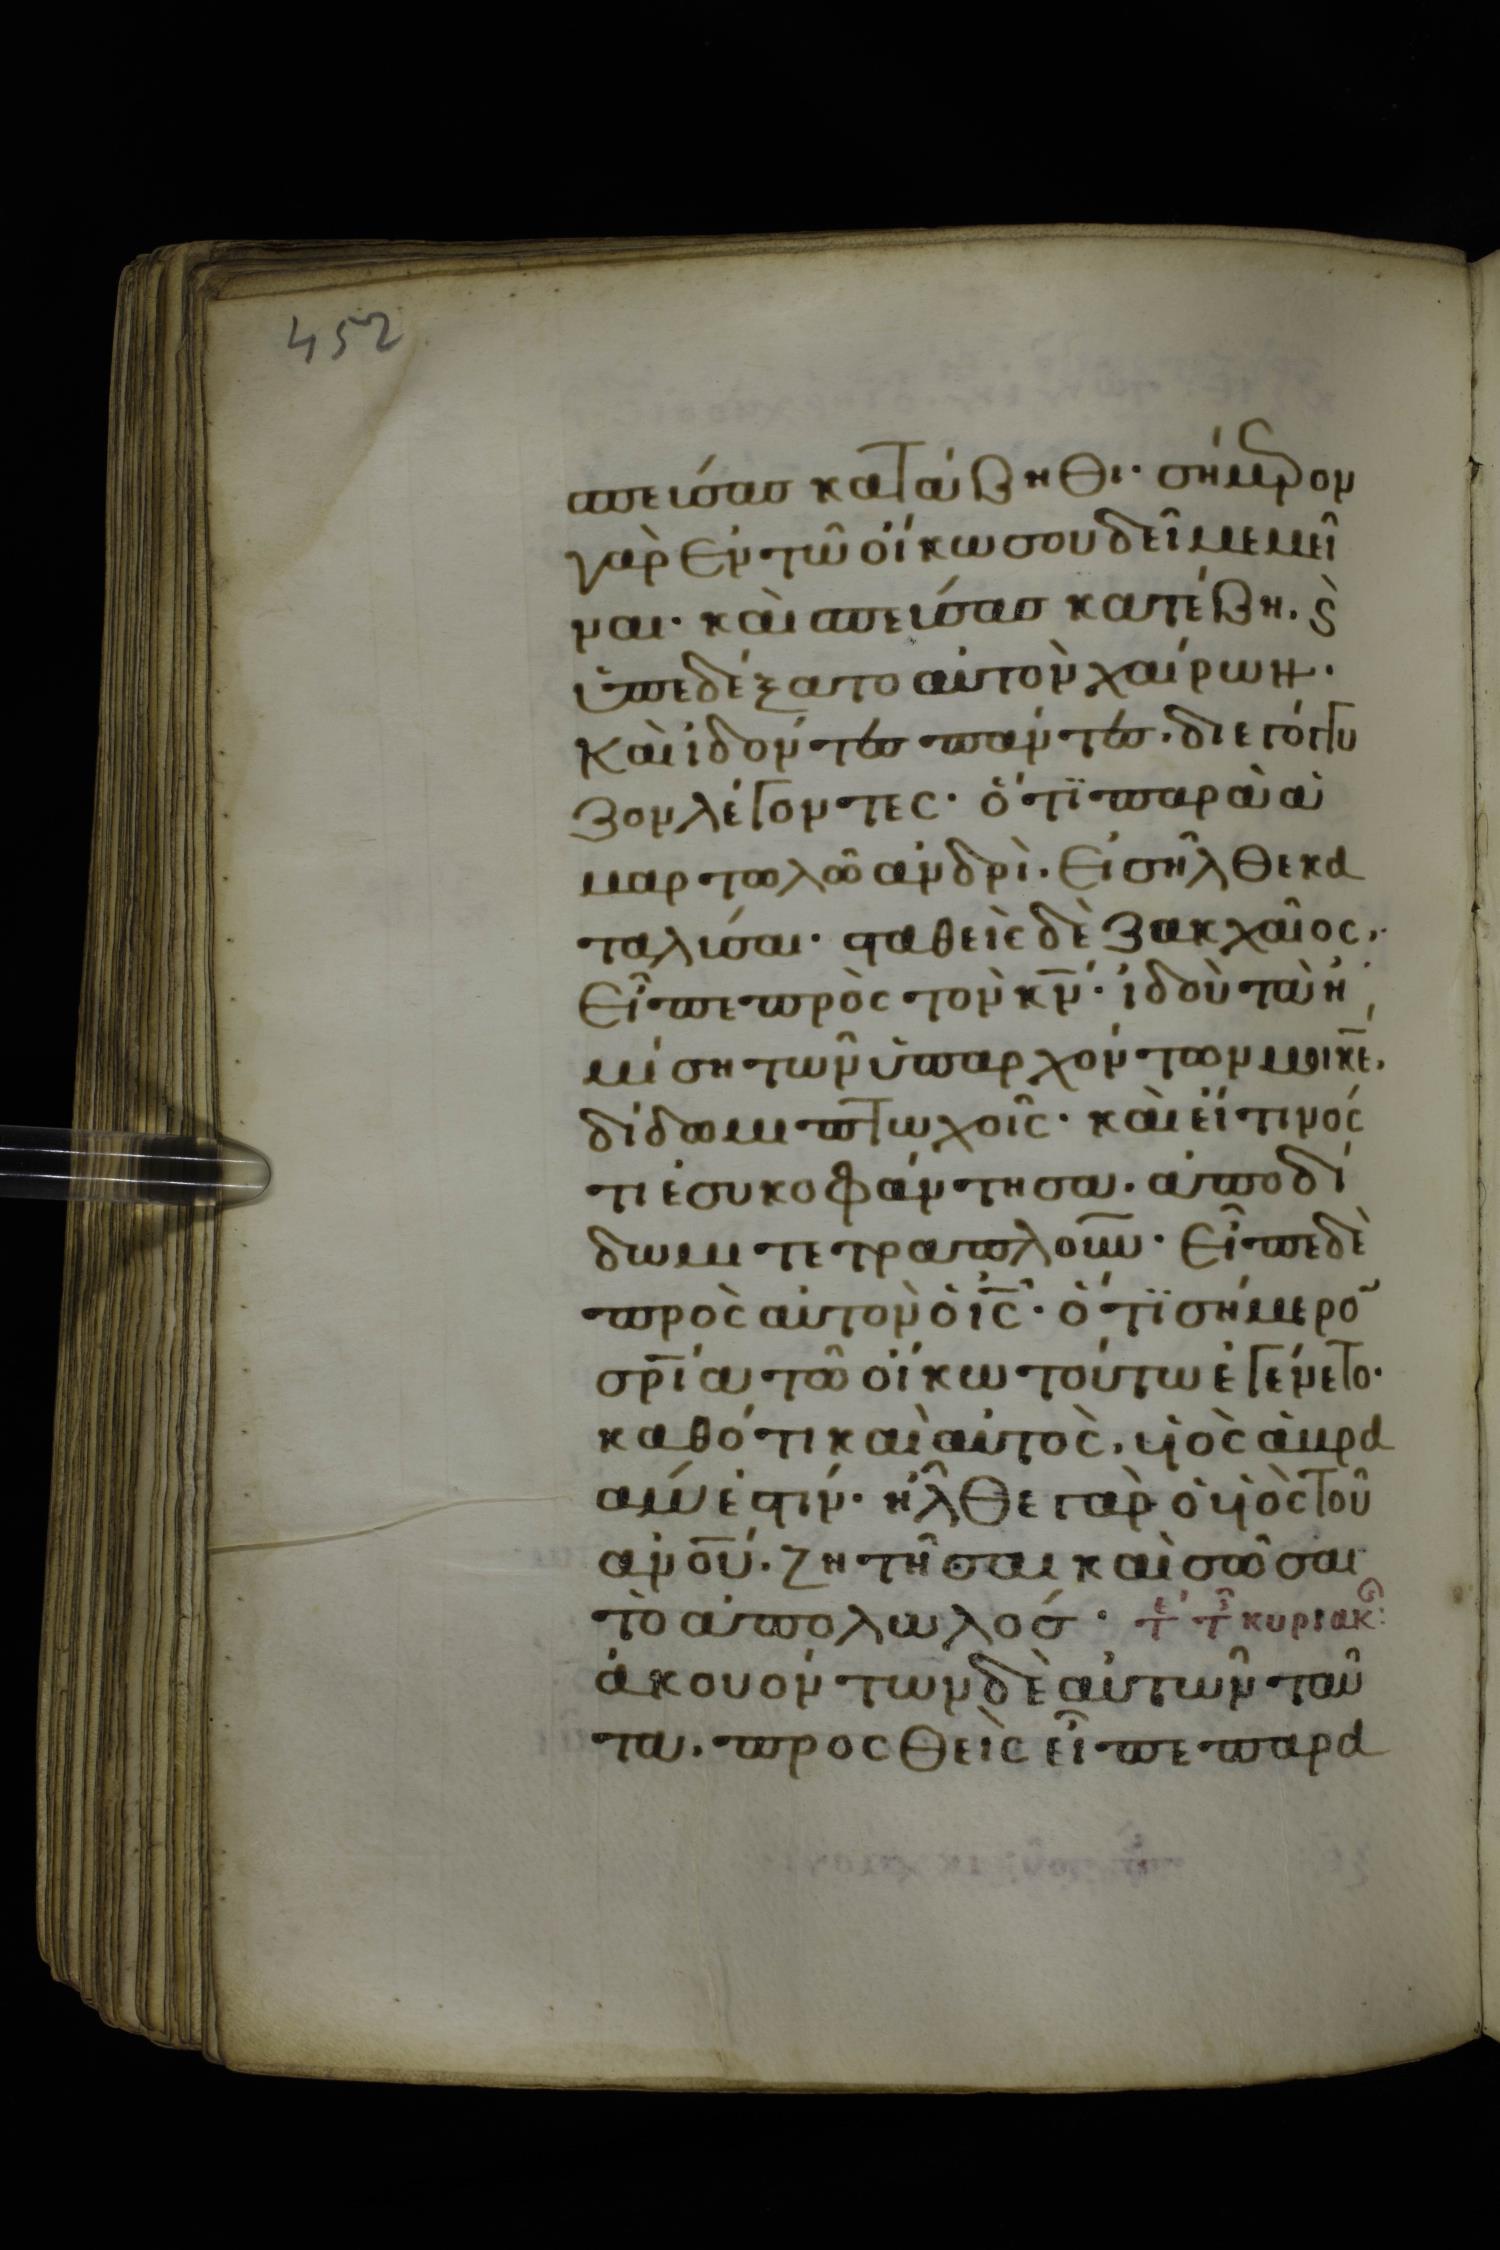 452
σπεύσας κατάβηθι· σήμερον
γὰρ ἐν τῶ οἴκω σου δεῖ με μεῖ
ναι· καὶ σπεύσας κατέβη. ϗ
ὑπεδέξατο αὐτὸν χαίρων.
Καὶ ἰδόντες πάντες. διεγόγγυ
ζον λέγοντες· ὅτι παρὰ ἁ
μαρτωλῶ ἀνδρὶ. εἰσῆλθε κα
ταλῦσαι· σταθεὶς δὲ Ζακχαῖος.
εἶπε πρὸς τὸν κν· ἰδοὺ τὰ ἡ
μίση τῶν ὑπαρχόντων μου κε.
δίδωμι πτωχοῖς· καὶ εἴ τινός
τι ἐσυκοφάντησα. ἀποδί
δωμι τετραπλοῦν· εἶπε δὲ
πρὸς αὐτὸν ὁ ις· ὅτι σήμερον
σρία τῶ οἴκω τούτω ἐγένετο·
καθότι καὶ αὐτὸς. υἱὸς ἁβρα
άμ ἐστίν· ἦλθε γὰρ ὁ υἱὸς τοῦ
ανου. ζητῆσαι καὶ σῶσαι
τὸ ἀπολωλός· τε τ κυριακ:
ἀκουόντων δὲ αὐτῶν ταῦ
τα. προσθεὶς εἶπε παρα